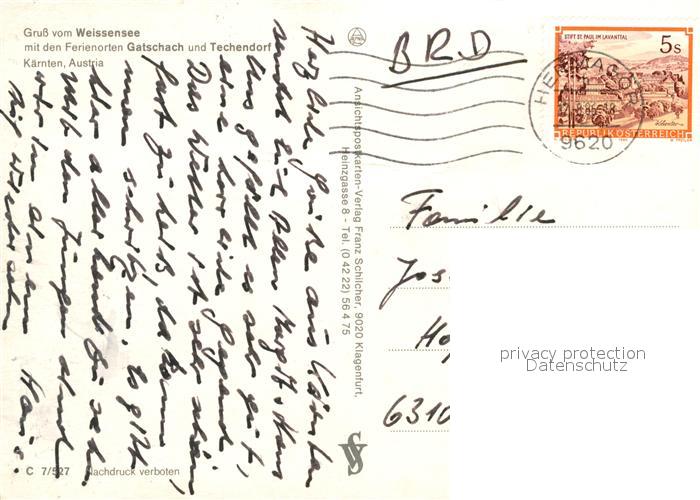 Gruß vom Weissensee
mit den Ferienorten Gatschach und Techendorf
Kärnten, Austria
Herzliche Grüße aus Kärnten
sendet euch allen
Uns gefällt es sehr gut,
eine herrliche Gegend.
Das Wetter ist sehr schön
fast zu heiß, da kann
man schwitzen. Es gibt
hier allerhand zu sehen.
Hans.
C 7/527 Nachdruck verboten
Ansichtspostkarten-Verlag Franz Schilcher, 9020 Klagenfurt,
Heinzgasse 8 - Tel. (0 42 22) 56 4 75
BRD
STIFT ST. PAUL IM LAVANTTAL
5 S
REPUBLIK ÖSTERREICH
HERMAGOR
9620
Familie
Jos
Ho
6310
privacy protection
Datenschutz